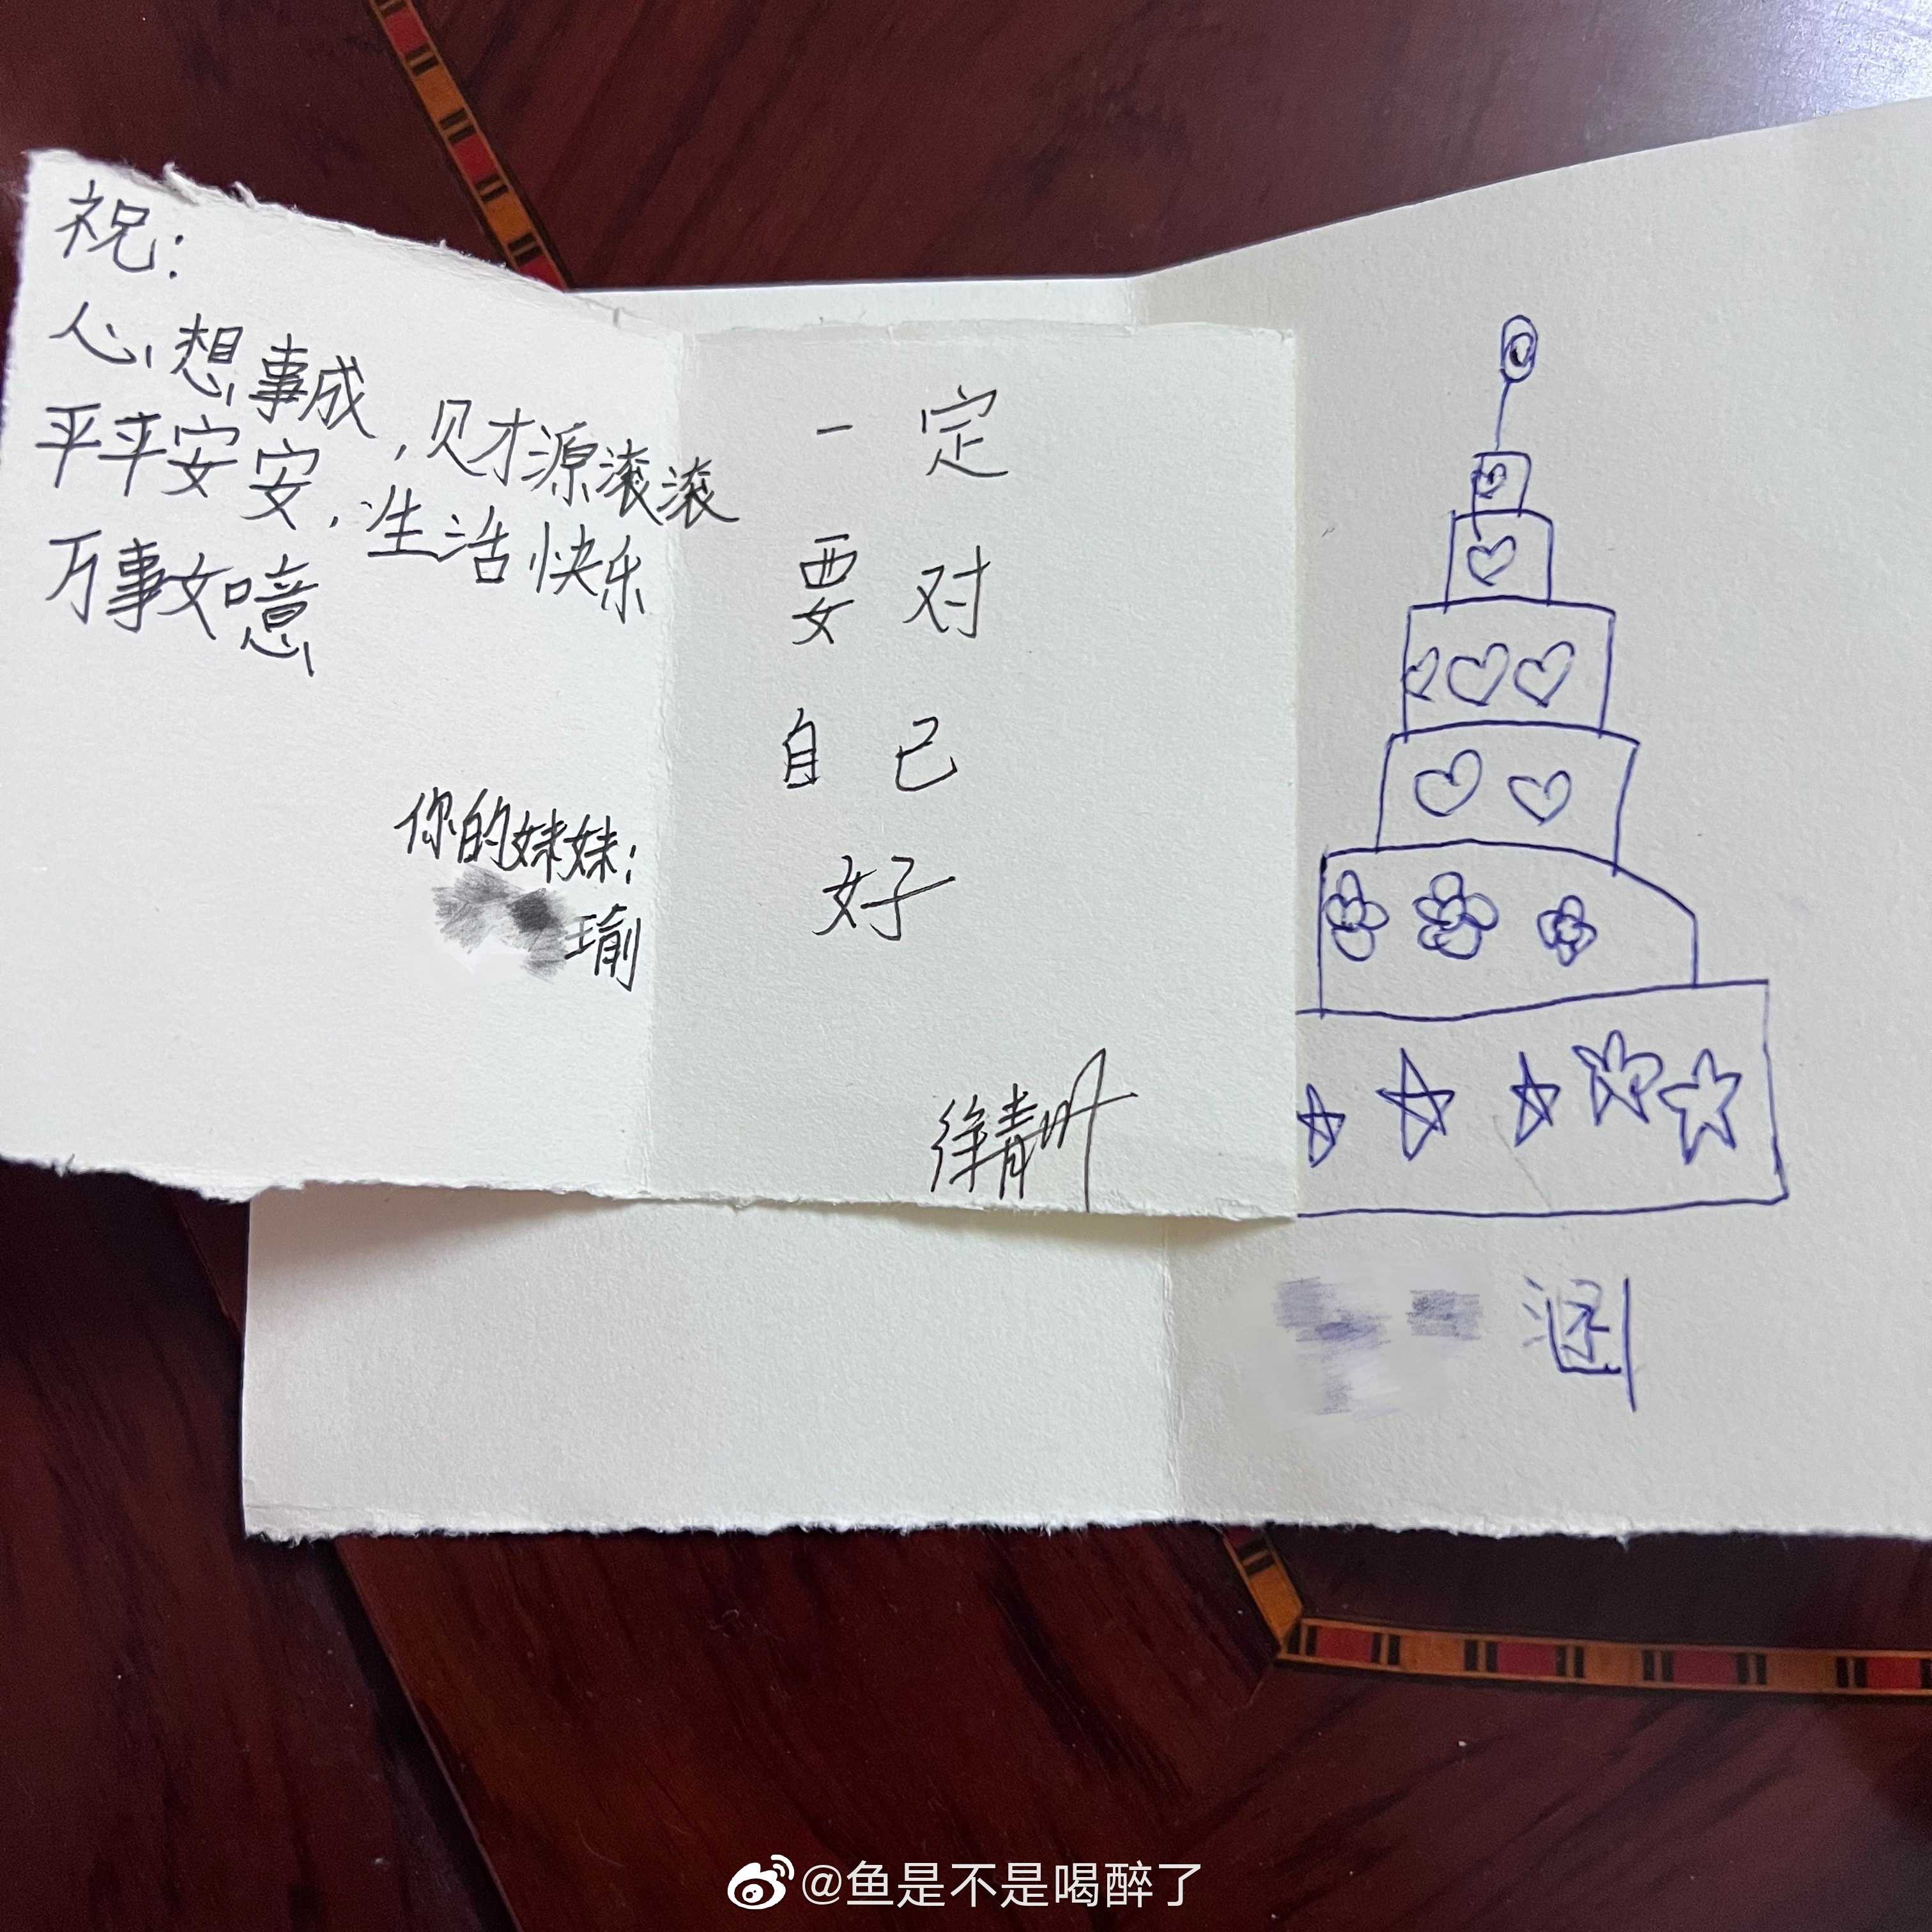 祝：
心想事成，财源滚滚
平平安安，生活快乐
万事女噫
你的妹妹：
瑜
一定
要对
自己
好
涵
@鱼是不是喝醉了